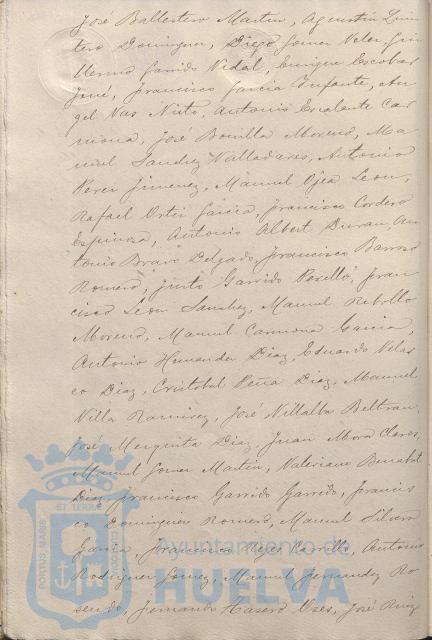 José Ballestero Martin, Agustín Quin
tero Dominguez, Diego Gomez Velez, Gui
llermo Garrido Vidal, Enrique Escobar
José, Francisco Garcia Infante, An
gel Vas Nieto, Antonio Escalante Car
mona, José Bonilla Moreno, Ma
nuel Sanchez Valladares, Antonio
Perez Jimenez, Manuel Ojea Leon,
Rafael Ortiz Garcia, Francisco Cordero
Espinosa, Antonio Albert Duran, An
tonio Bravo Delgado, Francisco Barroso
Romero, Justo Garrido Perillo, Fran
cisco Leon Sanchez, Manuel Rebollo
Moreno, Manuel Carmona Garcia,
Antonio Hernandez Diaz, Eduardo Velas
co Diaz, Cristobal Peña Diaz, Manuel
Villa Ramirez, José Villalba Beltran,
José Mezquita Diaz, Juan Mora Claros,
Manuel Gomez Martin, Valeriano Benabat
Diaz, Francisco Garrido Garrido, Francis
co Dominguez Romero, Manuel Silvera
Garcia, Francisco Reyes Carrillo, Antonio
Rodriguez Gomez, Manuel Fernandez Ro
sendo, Fernando Casero Oses, José Ruiz
PORTUS MARIS
ET TERRAE
CUSTODIA
Ayuntamiento de
HUELVA